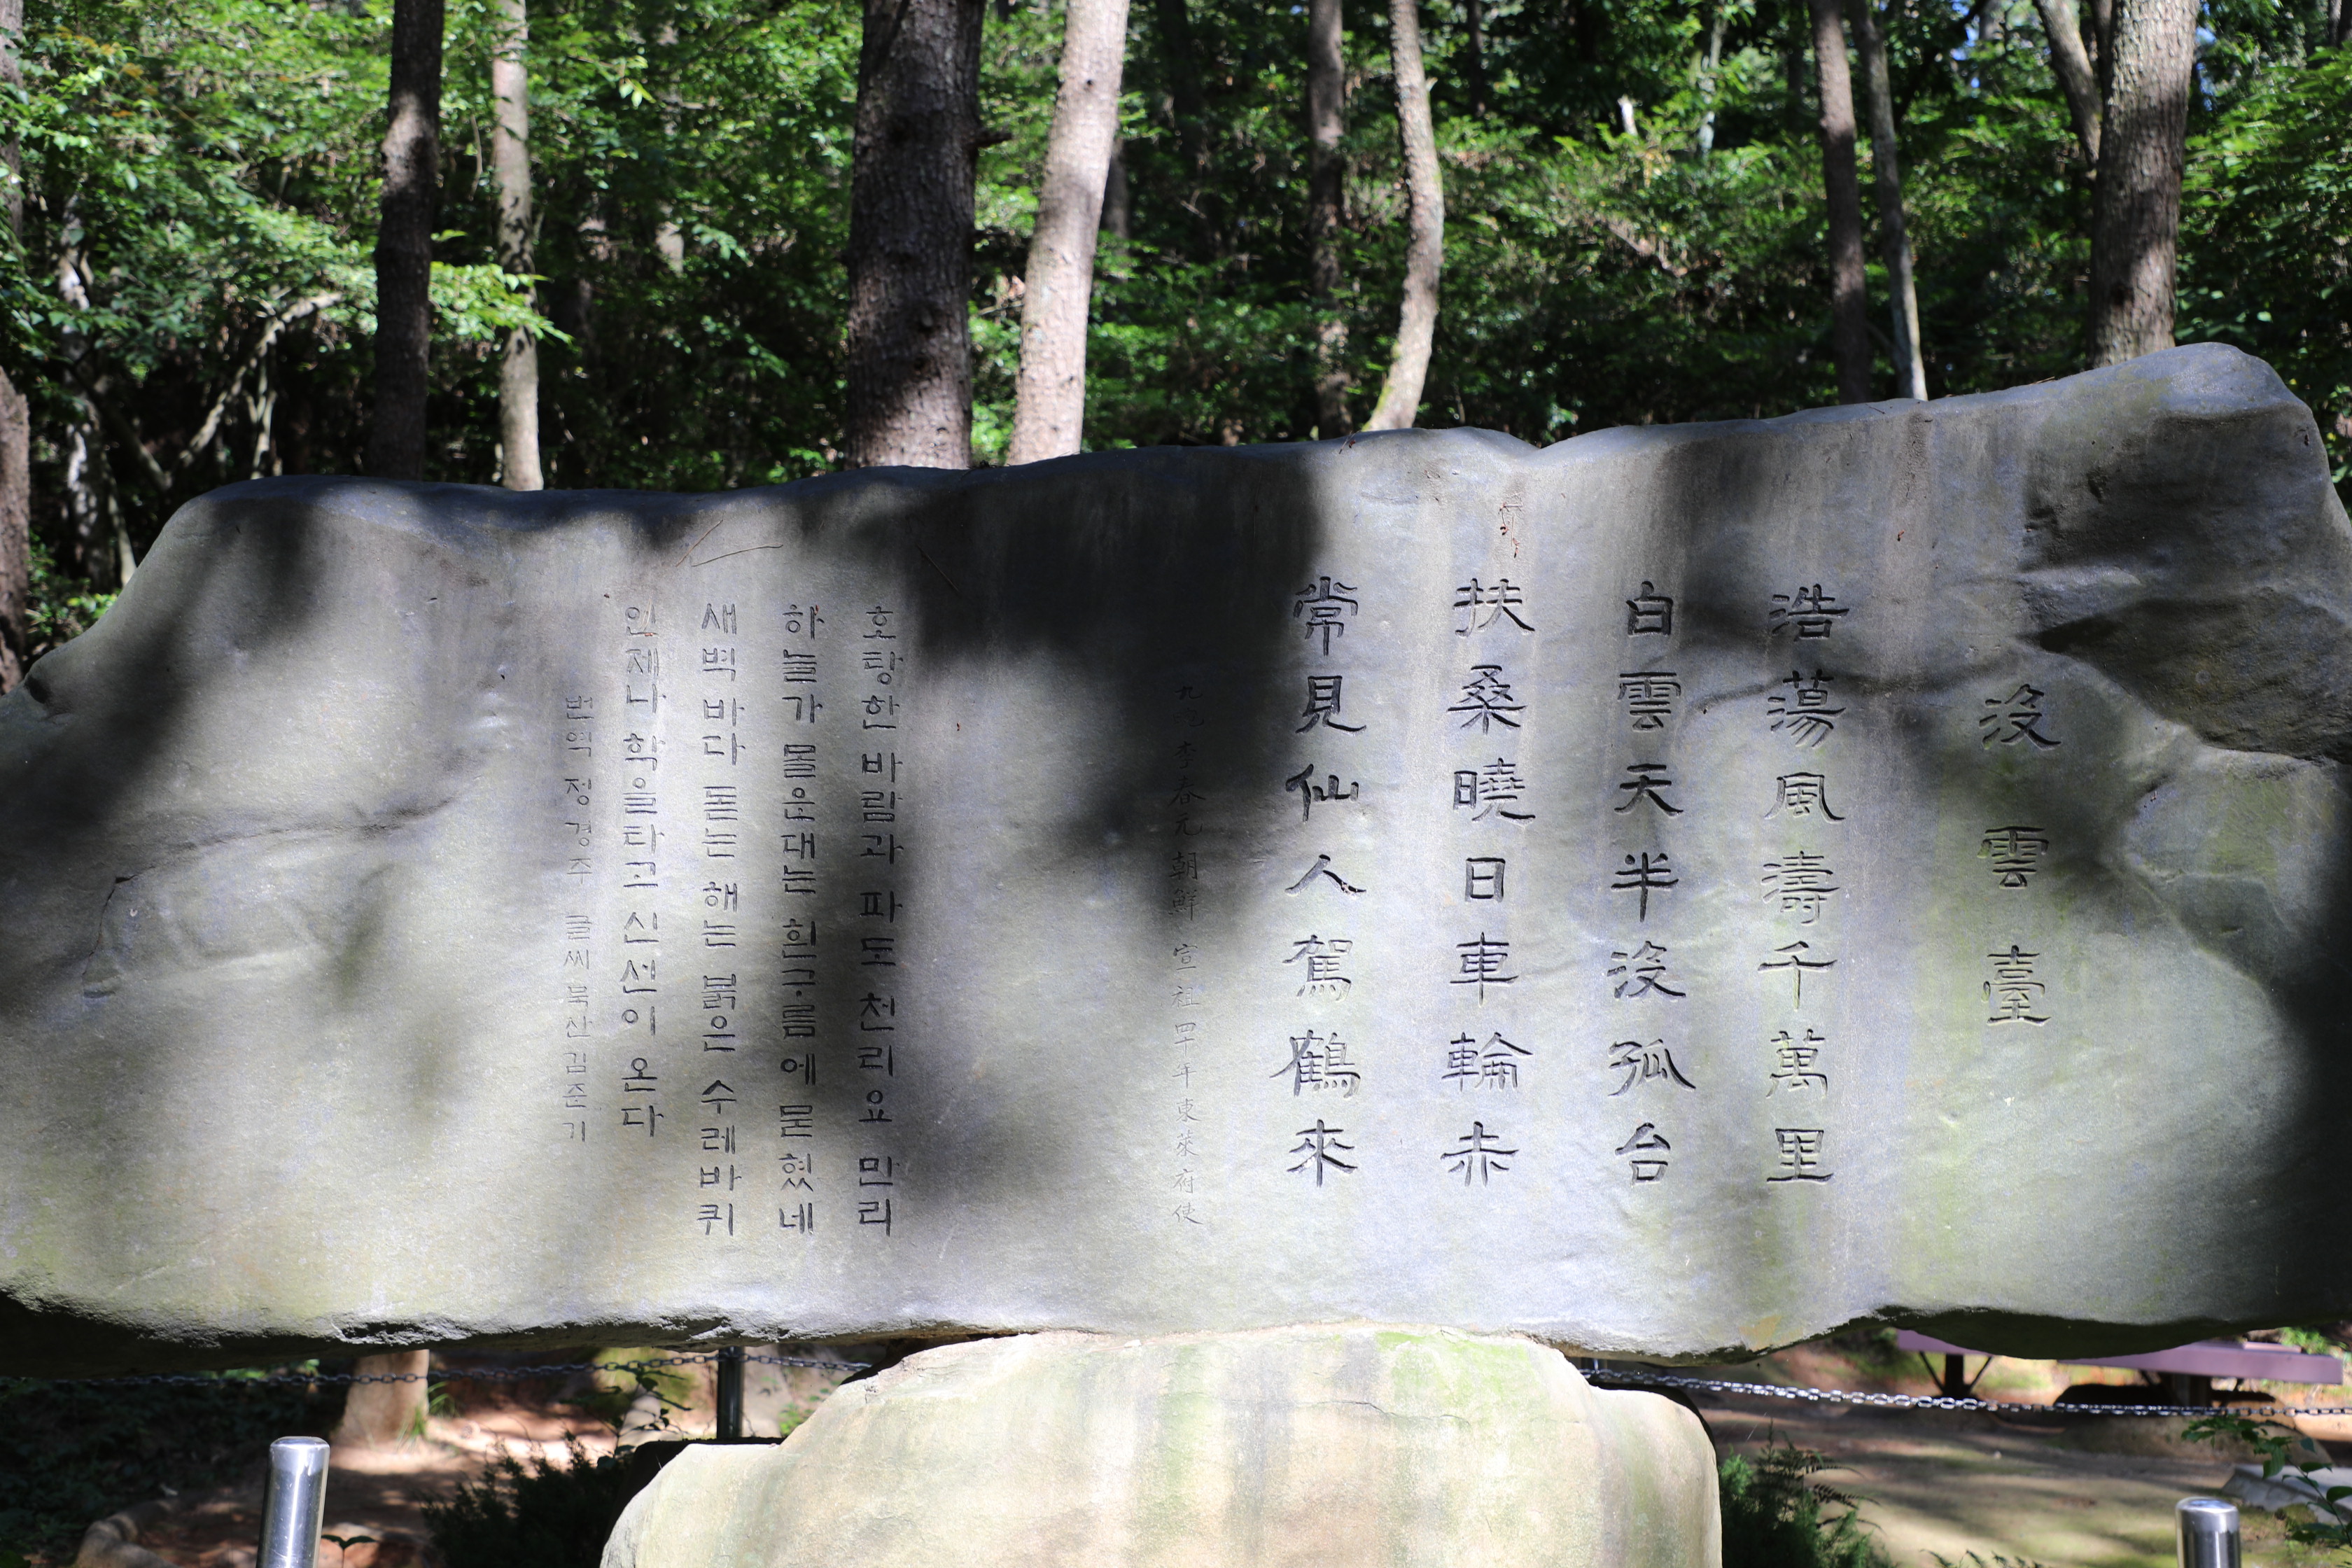 沒雲臺
浩蕩風濤千萬里
白雲天半沒孤台
扶桑曉日車輪赤
常見仙人駕鶴來
九畹 李春元 朝鮮 宣祖四十年東萊府使
호탕한 바람과 파도 천리요 만리
하늘가 몰운대는 흰구름에 묻혔네
새벽 바다 돋는 해는 붉은 수레바퀴
언제나 학을타고 신선이 온다
번역 정경주 글씨 북산 김준기